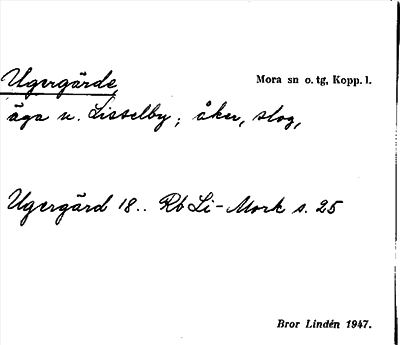 Ugergärde
Mora sn o. tg, Kopp. l.
äga u. Lisselby; åker, slog,
Ugergärd 18.. Rb Li-Mork s. 25
Bror Lindén 1947.